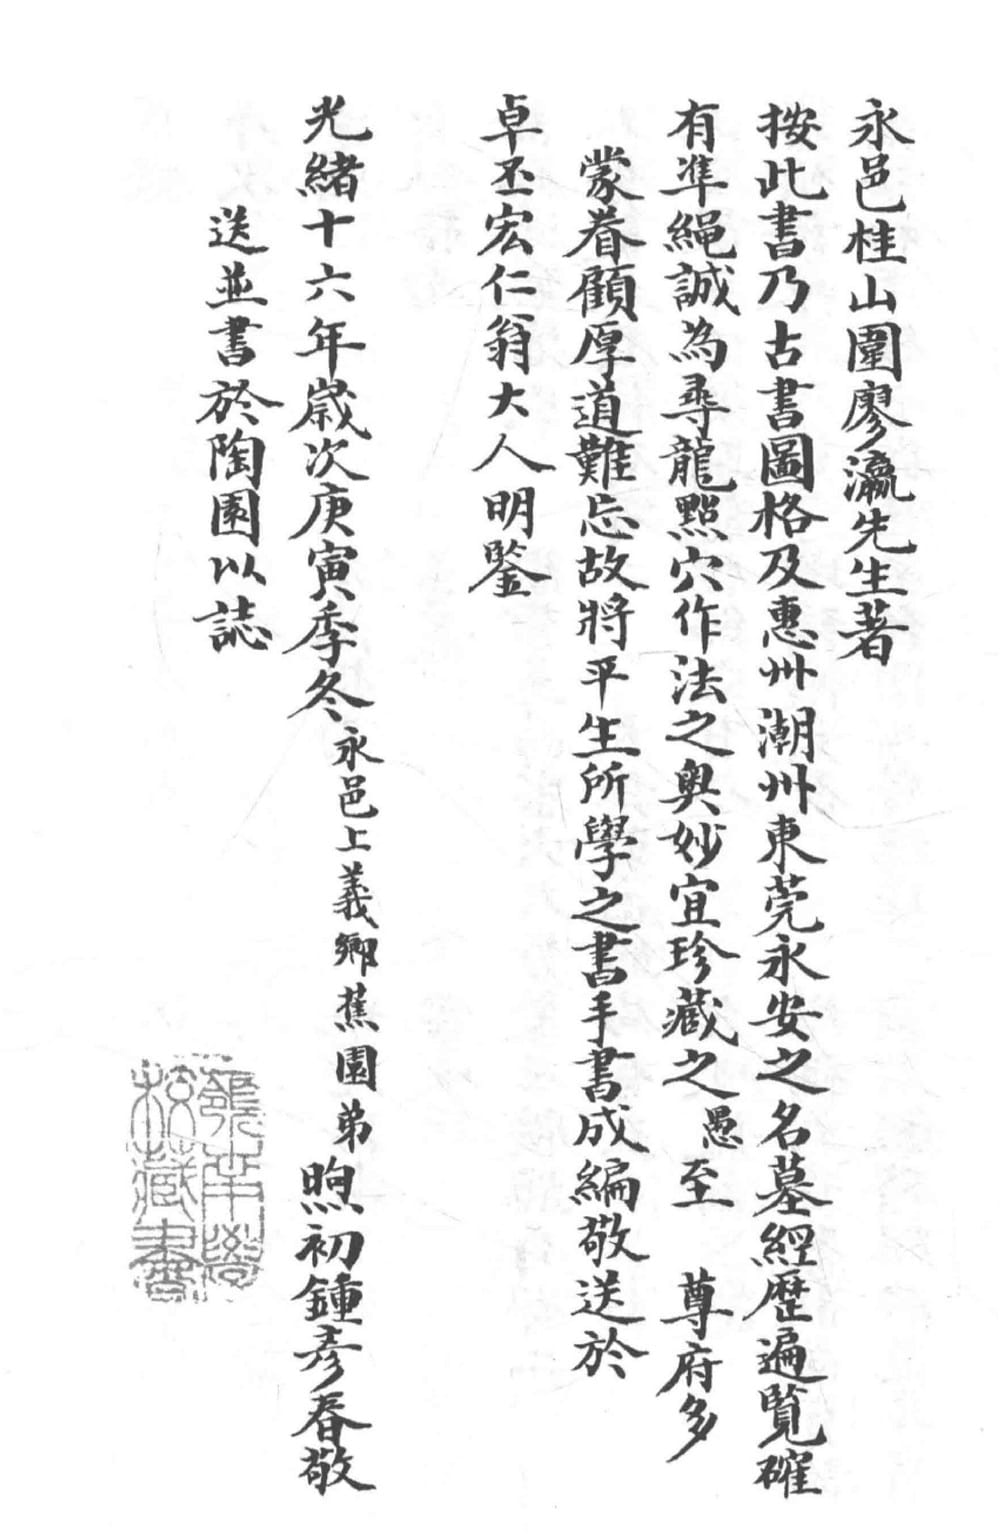 永邑桂山圍廖瀛先生著
按此書乃古書圖格及惠州潮州東莞永安之名墓經歷遍覽確
有準繩誠為尋龍點穴作法之奧妙宜珍藏之愚至 尊府多
蒙眷顧厚道難忘故將平生所學之書手書成編敬送於
卓丕宏仁翁大人明鑒
光緒十六年歲次庚寅季冬永邑上義鄉蕉園弟煦初鍾彥春敬
送並書於陶園以誌
嶺南大學
校藏書